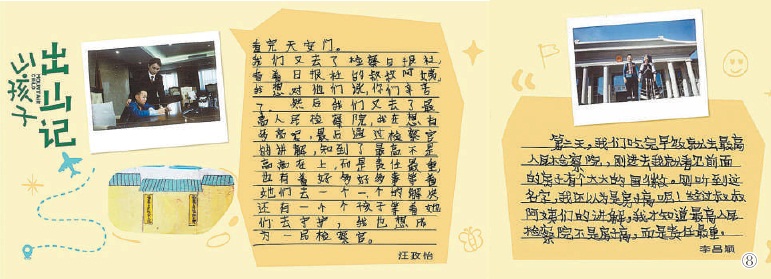 出山记
山孩子
MOUNTAIN CHILD
看完天安门。
我们又去了检察日报社,
看着日报社的叔叔阿姨,
我想对他们说你们辛苦
了。然后我们又去了最
高人民检察院,我在想有
多高呢,最后通过检察官
的讲解,知到了最高不是
高高在上,而是责任最重,
也有着好多好多事等着
她们去一个一个的解决
还有一个个孩子等着她
们去守护,我也想成
为一民检察官。
汪政怡
第二天,我们吃完早饭就出最高
人民检察院,刚进去我就看见前面
的房子有个大大的国徽。刚听到这
名字,我还以为是房子高呢!经过叔叔
阿姨们的讲解,我才知道最高人民
检察院不是房子高,而是责任最重。
李昌顺
⑧